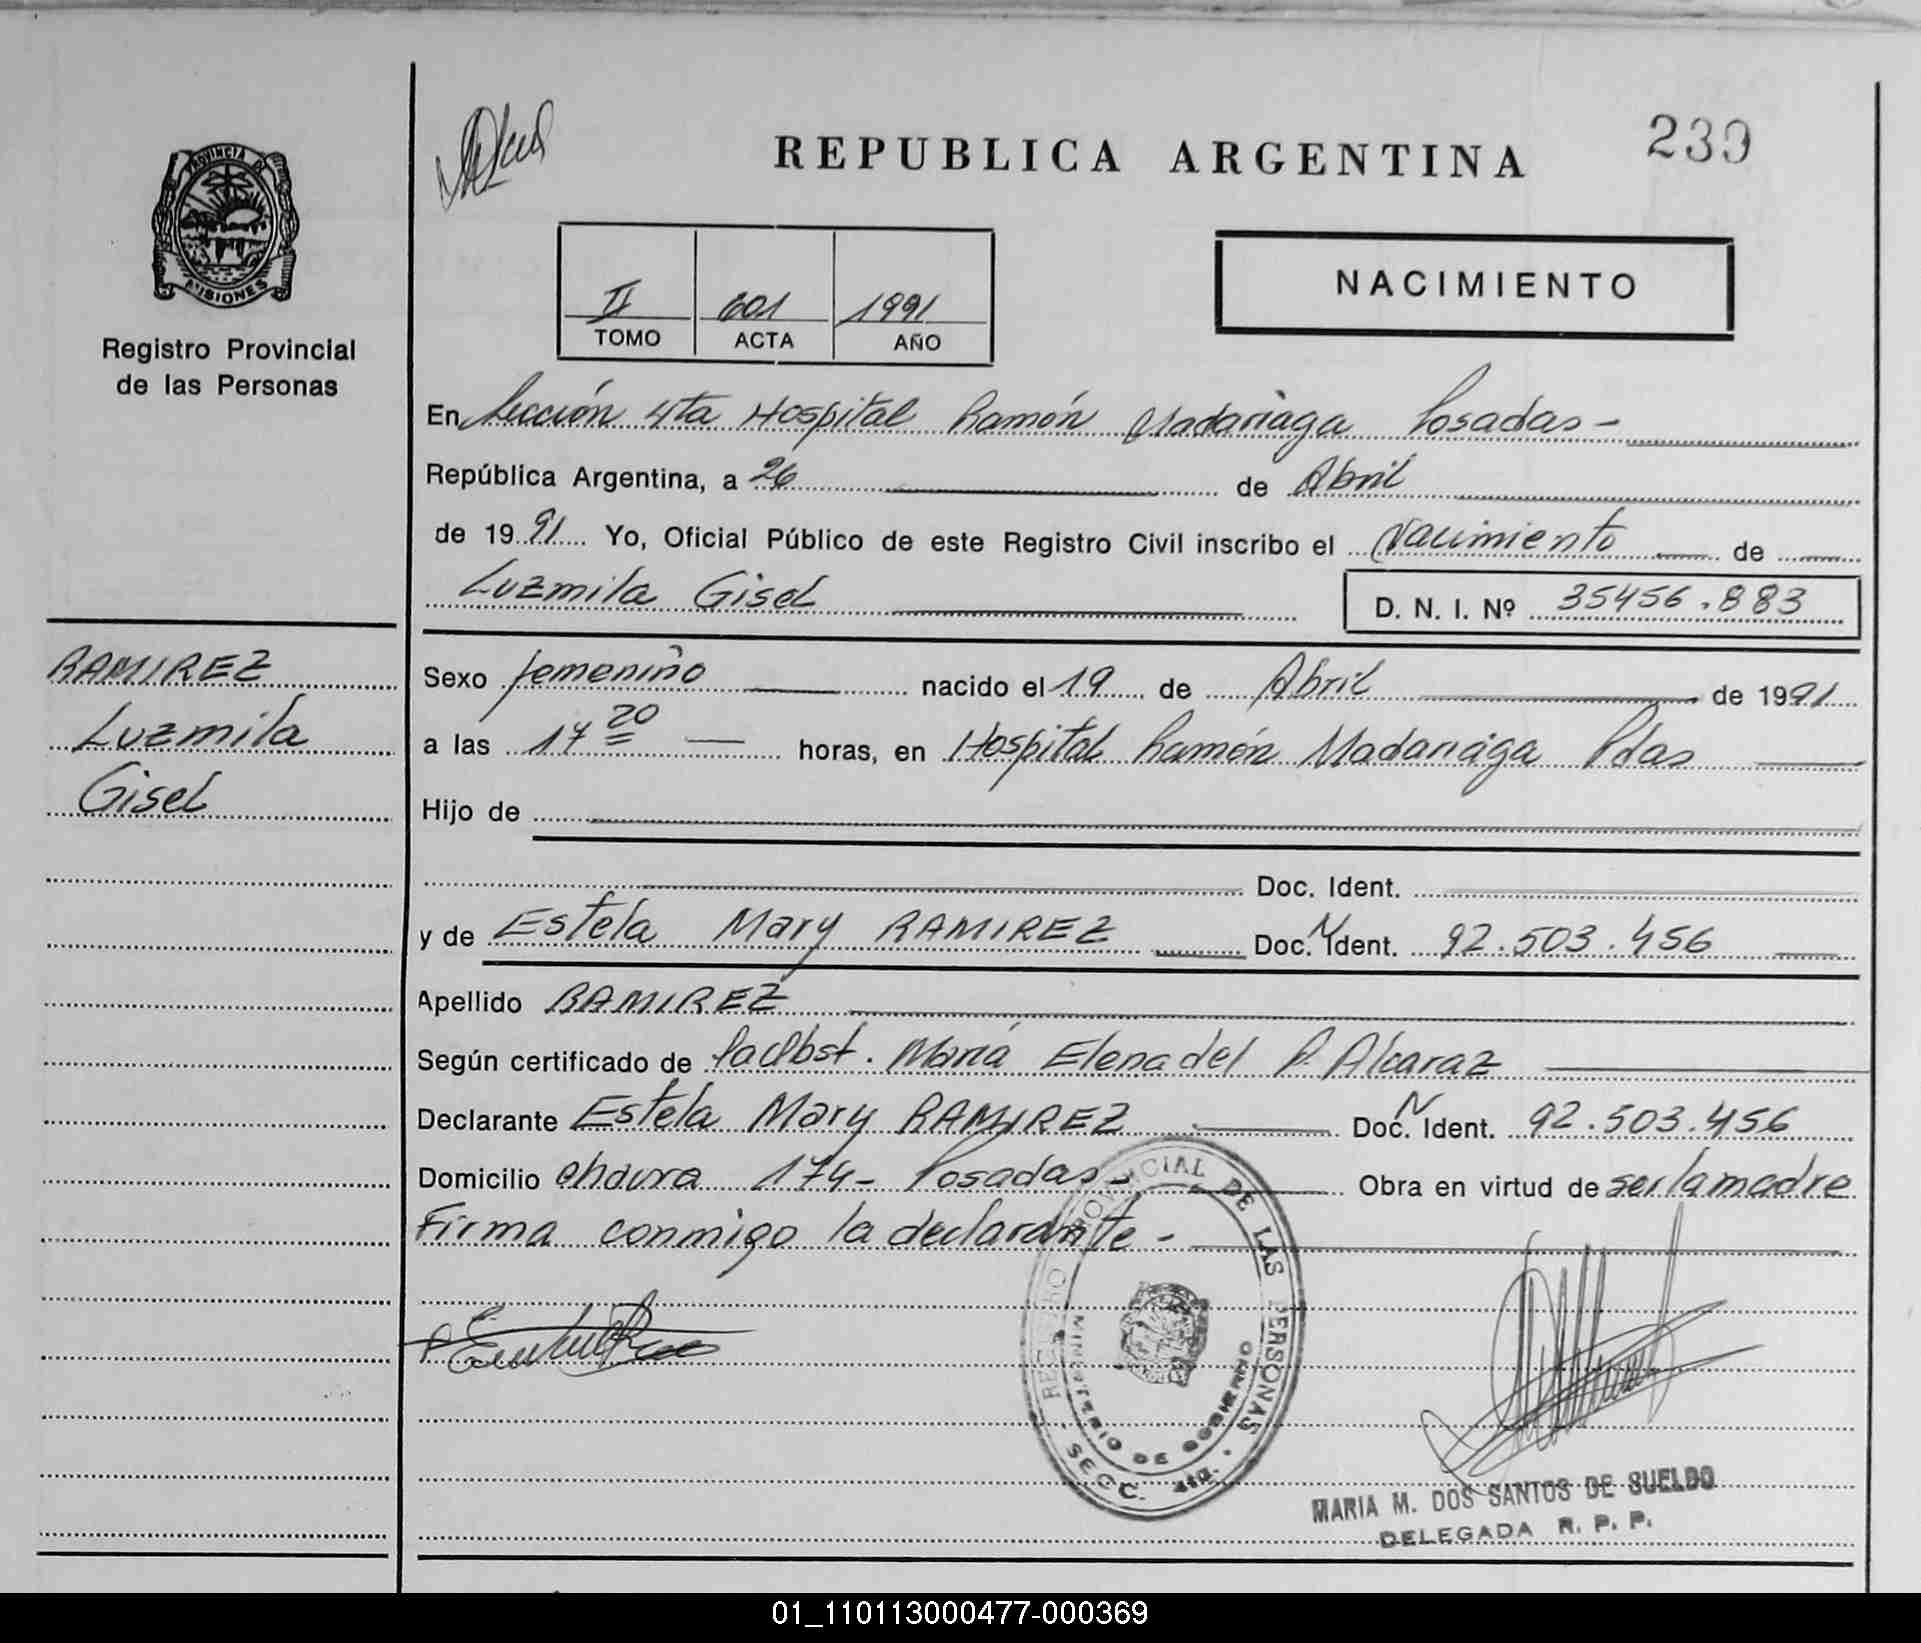 239
REPUBLICA ARGENTINA
PROVINCIA DE
MISIONES
Registro Provincial
de las Personas
NACIMIENTO
II 601 1991
TOMO ACTA AÑO
En Sección 4ta Hospital Ramón Madariaga Posadas-
República Argentina, a 26 de Abril
de 1991 Yo, Oficial Público de este Registro Civil inscribo el Nacimiento de
Luzmila Gisel D. N. I. Nº 35456.883
RAMIREZ
Luzmila
Gisel
Sexo femenino nacido el 19 de Abril de 1991
a las 17 20 horas, en Hospital Ramón Madariaga Pdas
Hijo de
Doc. Ident.
y de Estela Mary RAMIREZ Doc. N Ident. 92.503.456
Apellido RAMIREZ
Según certificado de María Elena del P. Alcaraz
Declarante Estela Mary RAMIREZ Doc. N Ident. 92.503.456
Domicilio 174- Posadas- Obra en virtud de ser la madre
Firma conmigo la declarante-
REGISTRO PROVINCIAL DE LAS PERSONAS
MINISTERIO DE GOBIERNO
SECC. 4ta.
MARIA M. DOS SANTOS DE SUELDO
DELEGADA R. P. P.
01_110113000477-000369